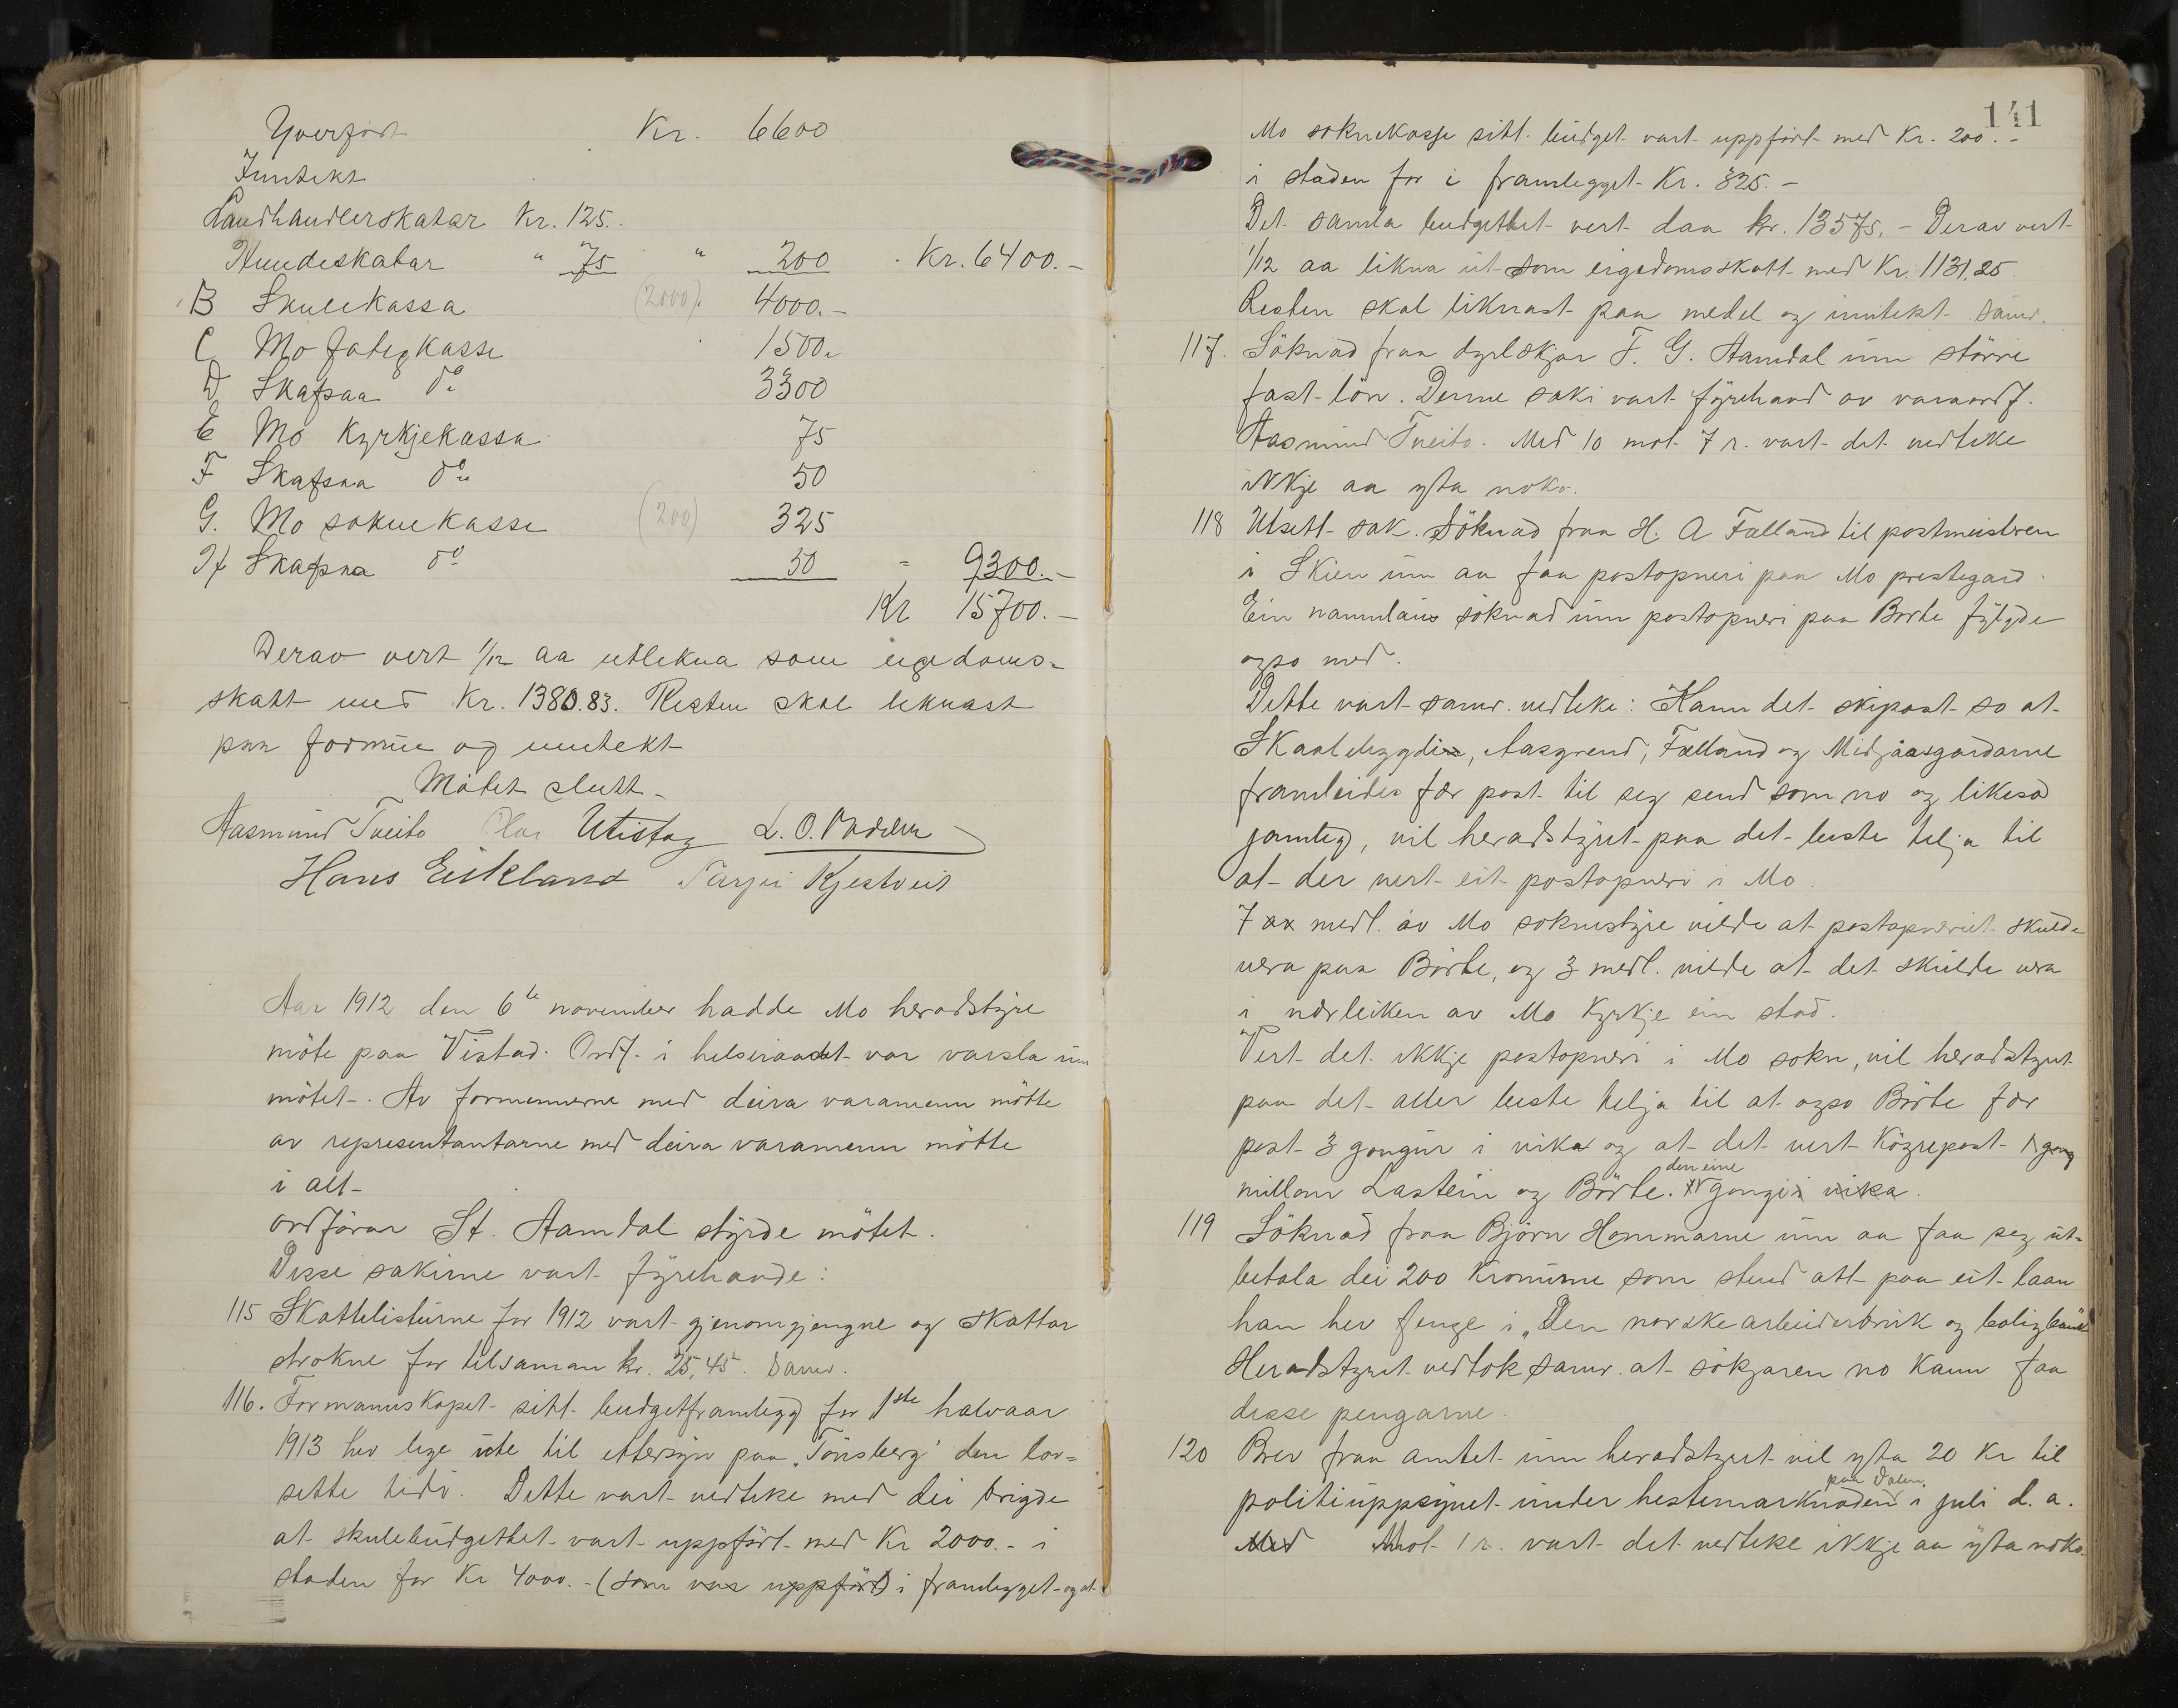 Yverført Kr. 6600
Inntekt
Landhandlerskatar Kr. 125.
Hundeskatar " 75 " 200 - Kr. 6400.-
B Skulekassa (2000). 4000.-
C Mo fatigkasse 1500.
D Skafsaa do 3300
E Mo Kyrkjekassa 75
F Skafsaa do 50
G. Mo soknekasse (200) 325
H Skafsaa do 50 = 9300.-
Kr 15700.-
Derav vert 1/12 aa utlikna som eigedoms-
skatt med Kr. 1380.83. Resten skal liknast
paa formue og inntekt
Møtet slutt.
Aasmund Tveito Olav Utistog L. O. Vadder
Hans Eikland Targei Kjestveit
Aar 1912 den 6te november hadde Mo heradstyre
möte paa Vistad. Ordf. i helseraadet var varsla um
mötet. Av formennerne med deira varamenn mötte
av representantarne med deira varamenn mötte
i alt
ordförar St. Aamdal styrde mötet.
Disse sakirne vart fyrehavde:
115 Skattelisturne for 1912 vart gjenomgjengne og skattar
strokne for tilsaman kr. 25,45. Samr.
116. Formannskapet sitt budgetframlegg for 1ste halvaar
1913 hev lege ute til ettersyn paa "Tönsberg" den lov-
sette tidi. Dette vart vedteke med dei brigde
at skulebudgettet vart uppfört med Kr 2000.- i
staden for Kr 4000.- (som var uppfört) i framlegget og at
141
Mo soknekasse sitt budget vart uppfört med Kr. 200.-
i staden for i framlegget Kr. 325.-
Det samla budgettet vert daa kr. 13575.- Derav vert
1/12 aa likna ut som eigedomsskatt med Kr. 1131,25.
Resten skal liknast paa medel og inntekt. Samr.
117. Söknad fraa dyrlækjar F. G. Aamdal um större
fast lön. Denne saki vart fyrehavd av varaordf.
Aasmund Tveito. Med 10 mot 7 r. vart det vedteke
ikkje aa yta noko.
118 Utsett sak. Söknad fraa H. A Fælland til postmeisteren
i Skien um aa faa postopneri paa Mo prestegard.
Ein namnlaus söknad um postopneri paa Börte fylgde
ogso med.
Dette vart samr. vedteke: Kann det skipast so at
Skaalebygdi, Aasgrend, Fælland og Midjaasgardarne
framleides fær post til seg send som no og likeso
jamleg, vil heradstyret paa det beste telja til
at der vert eit postopneri i Mo.
7 medl. av Mo soknestyre vilde at postopneriet skulde
vera paa Börte, og 3 medl. vilde at det skulde vera
i nærleiken av Mo Kyrkje ein stad.
Vert det ikkje postopneri i Mo sokn, vil heradstyret
paa det aller beste telja til at ogso Börte fær
post 3 gongur i vika og at det vert Köyrepost 1 gong
millom Lastein og Börte. den eine gongi i vika.
119 Söknad fraa Björn Hommarne um aa faa seg ut-
betala dei 200 Kronurne som stend att paa eit laan
han hev fenge i "Den norske arbeiderbruk og boligbank
Heradstyret vedtok samr. at sökjaren no kann faa
desse pengarne.
120 Brev fraa amtet um heradstyret vil yta 20 Kr til
politiuppsynet under hestemarknaden paa Dalen i juli d. a.
Med Mot 1 r. vart det vedteke ikkje aa yta noko.